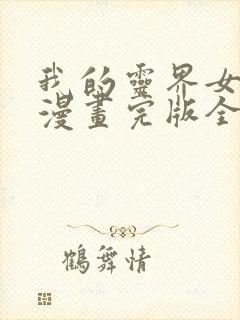 我的靈界女
漫畫完版全
鶴舞情